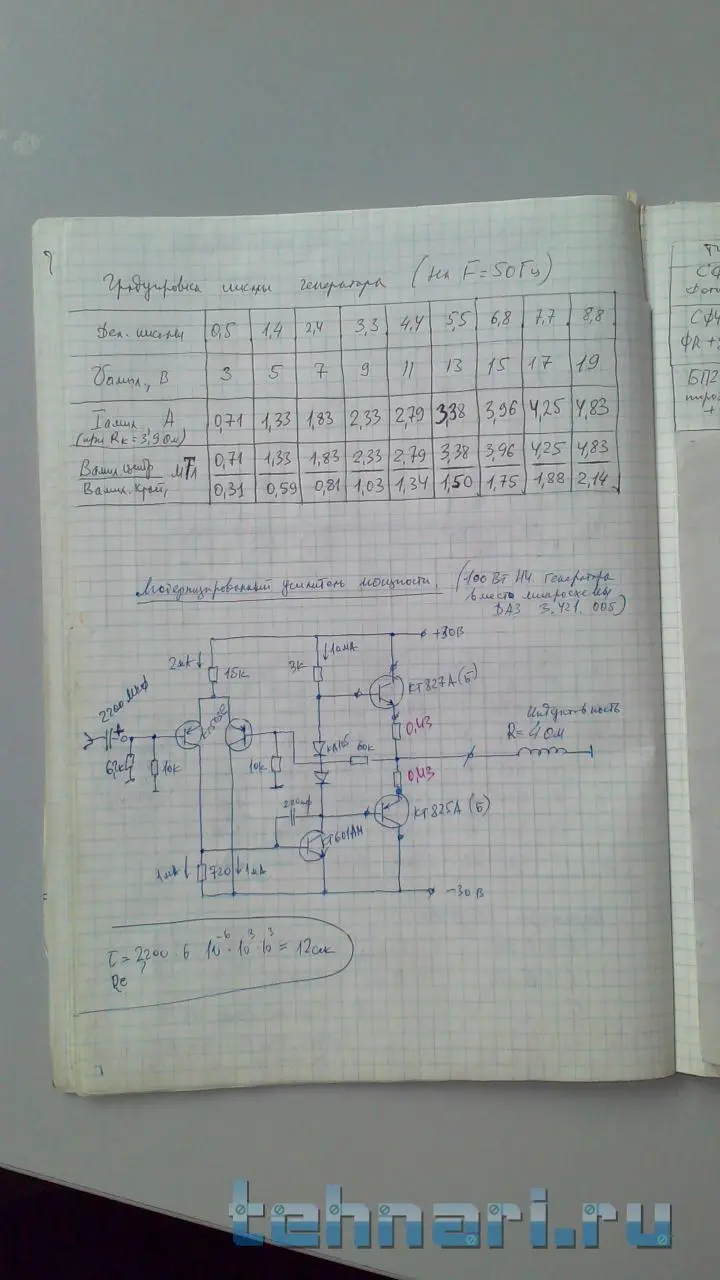 Градуировка шкалы генератора (на F=50Гц)
Дел. шкалы 0,5 1,4 2,4 3,3 4,4 5,5 6,8 7,7 8,8
Uампл, В 3 5 7 9 11 13 15 17 19
Iампл, А 0,71 1,33 1,83 2,33 2,79 3,38 3,96 4,25 4,83
(при Rк=3,9 Ом)
Вампл. центр мТл 0,71 1,33 1,83 2,33 2,79 3,38 3,96 4,25 4,83
Вампл. край, 0,31 0,59 0,81 1,03 1,34 1,50 1,75 1,88 2,14
Модернизированный усилитель мощности. (100Вт НЧ генератора
вместо микросхемы
ДАЗ 3.421.005)
+30В
2мА
15к
3к
10мА
КТ827А(Б)
2200мкф
+
62к
10к
10к
60к
0,43
0,43
Индуктивность
R=4Ом
КТ825А(Б)
КТ601АМ
1мА
720
1мА
-30В
τ = 2200 · 6 · 10⁻⁶ · 10³ · 10³ = 12сек
СФ4
ФК +
БП2
+
tehnari.ru